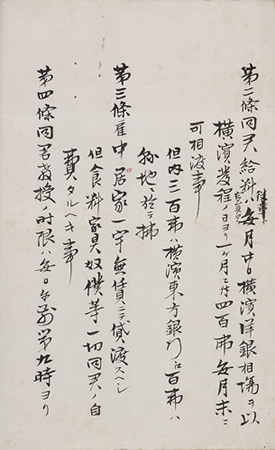 第二條同君給料毎月中日横濱洋銀相場ヲ以
横濱發程ノ日ヨリ一ケ月ニ付四百弗毎月末ニ
可相渡事
但内三百弗ハ横濱東方銀行ニ百弗ハ
於テ拂
第三條在中居家一宇無賃ニテ貸渡スヘシ
但食料家具奴僕等ハ一切同君ノ自
費タルヘキ事
第四條同君教授ノ時限ハ毎日午前第九時ヨリ